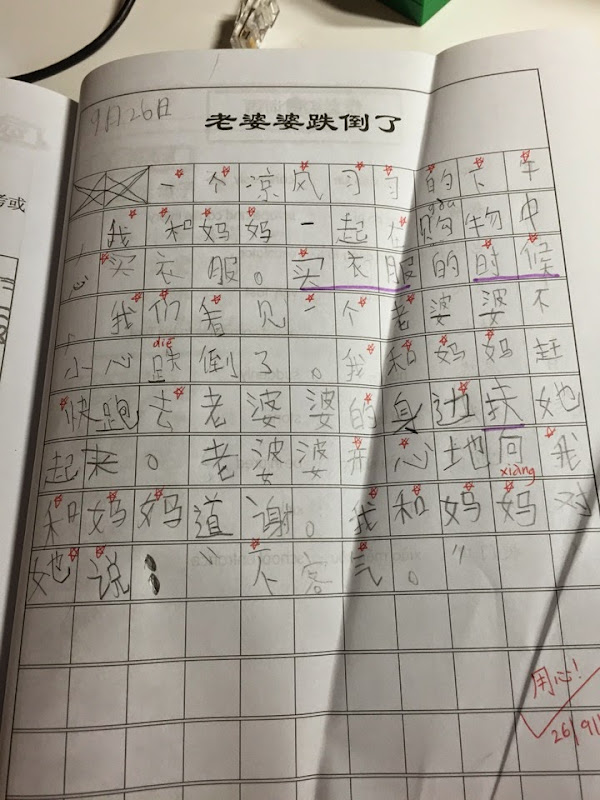 9月26日
老婆婆跌倒了
一个凉风习习的下午
我和妈妈一起在购物中
gòu
心买衣服。买衣服的时候
,我们看见一个老婆婆不
小心跌倒了。我和妈妈赶
diē
快跑去老婆婆的身边扶她
起来。老婆婆开心地向我
xiàng
和妈妈道谢。我和妈妈对
她说:"不客气。"
用心!
26/9/